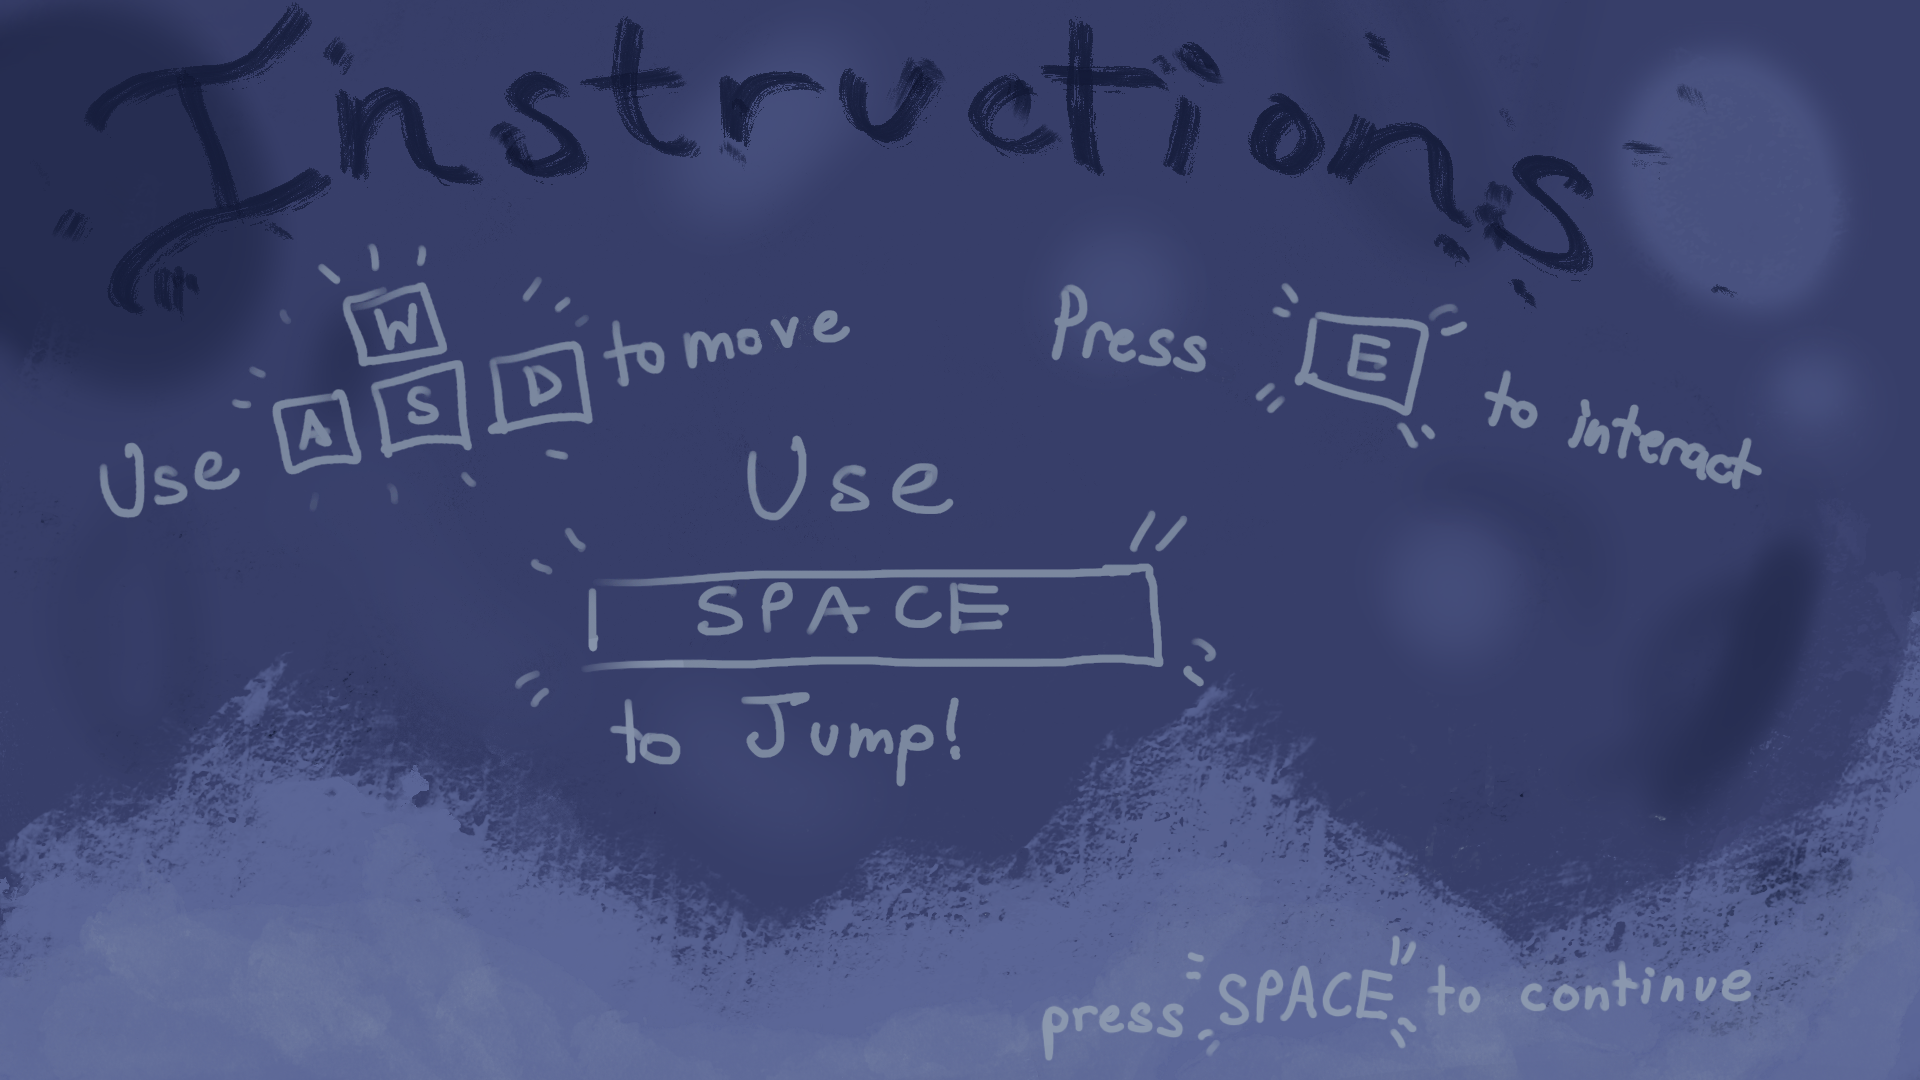 Instructions
Use W A S D to move
Press E to interact
Use
SPACE
to Jump!
press SPACE to continue